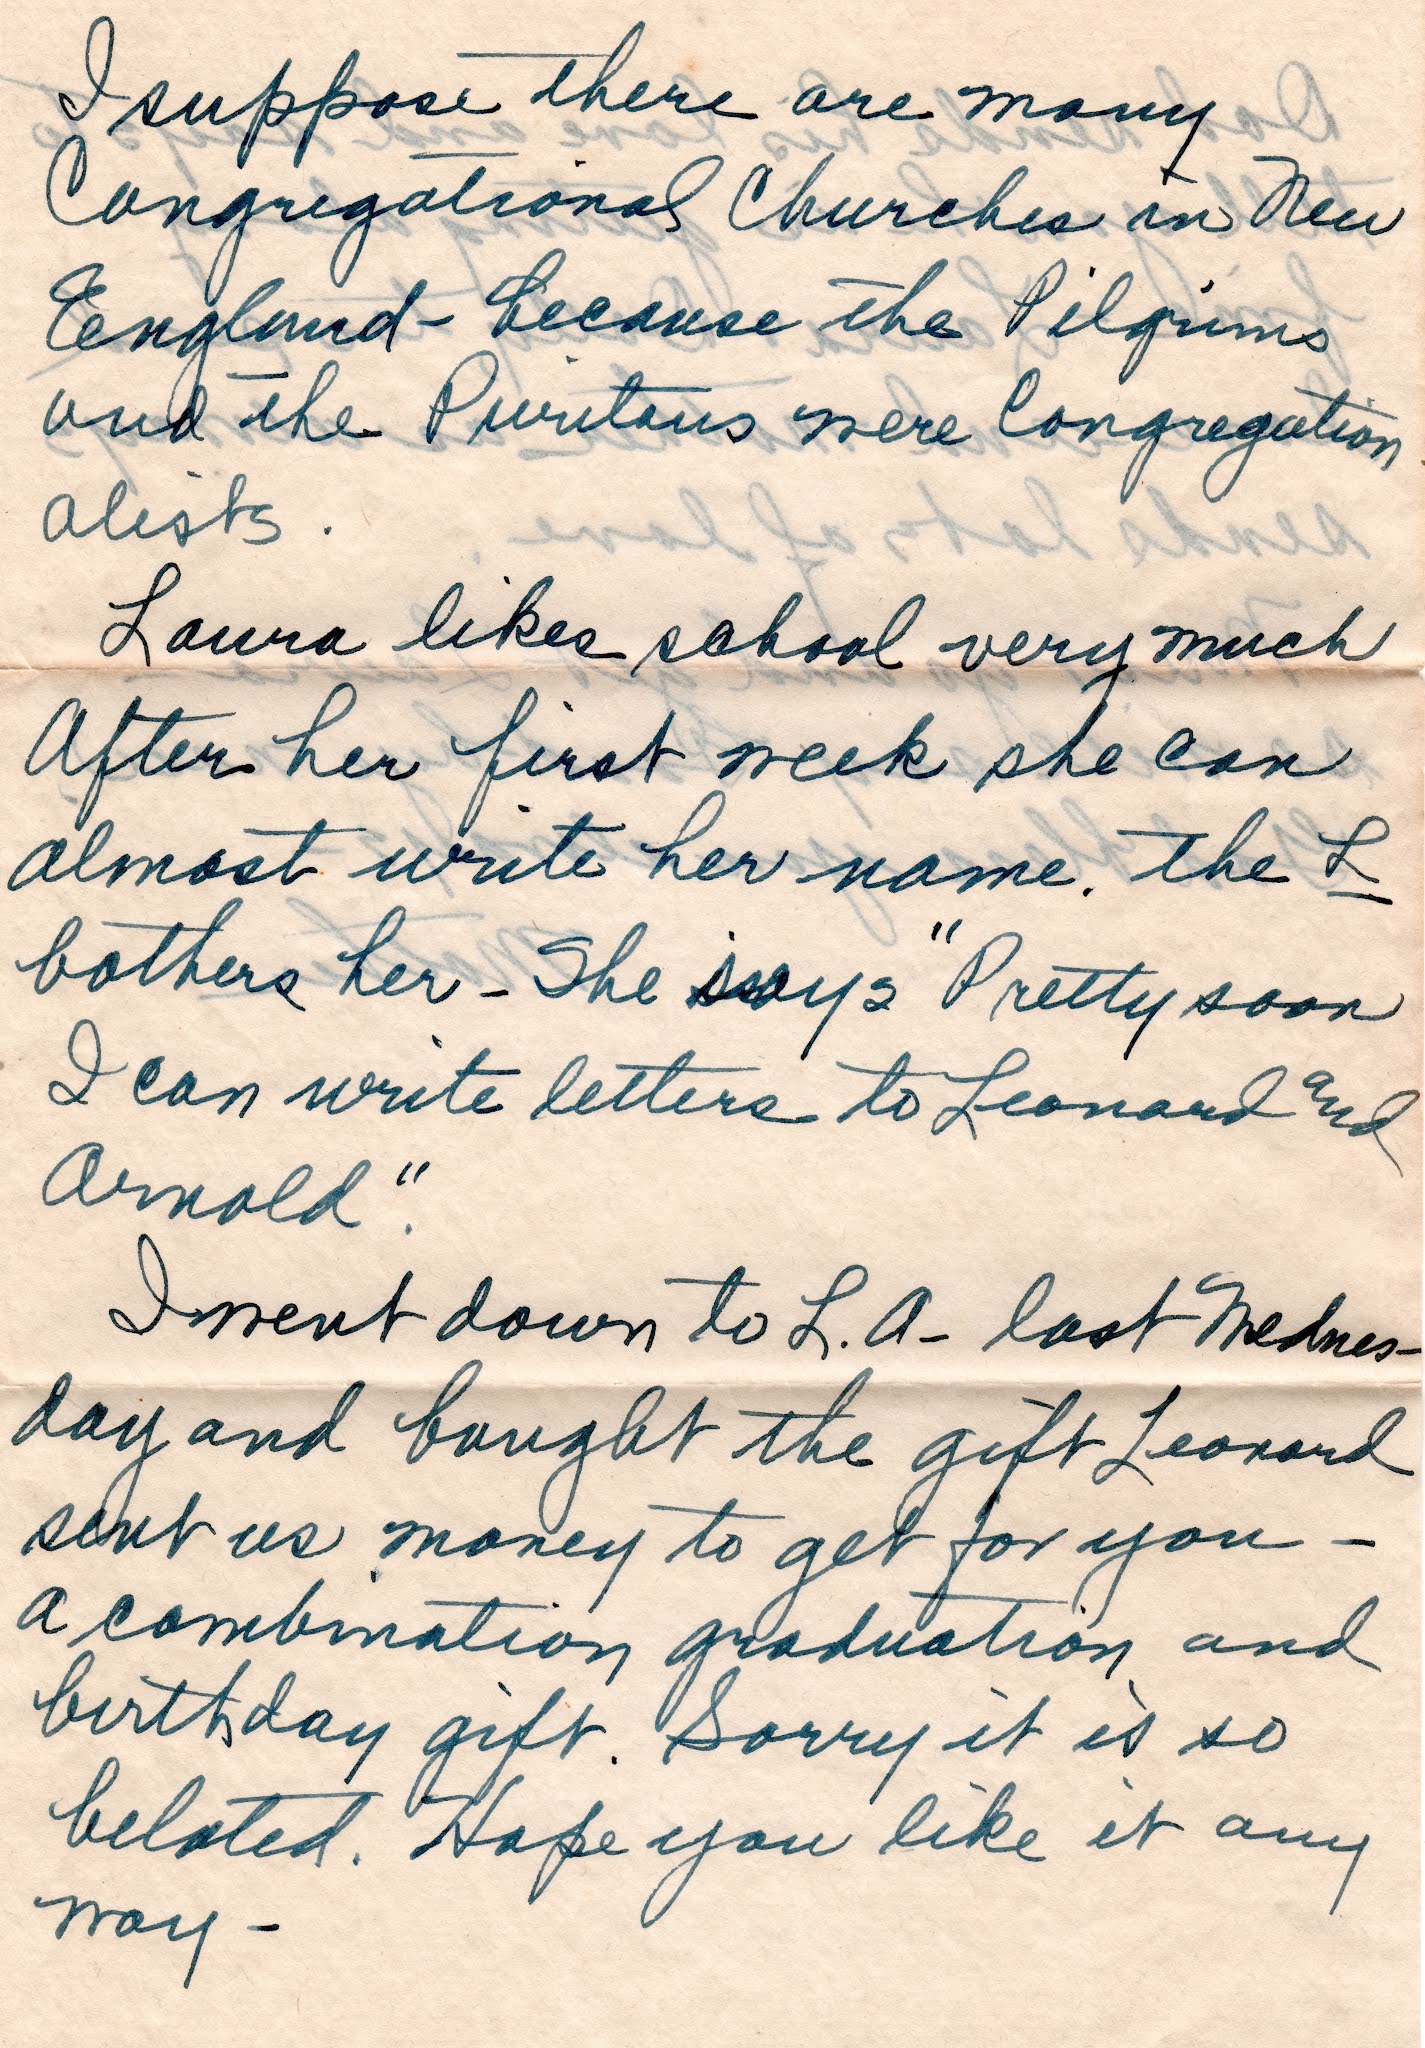 I suppose there are many
Congregational Churches in New
England - because the Pilgrims
and the Puritans were Congregation
alists.
Laura likes school very much
After her first week she can
almost write her name. The L
bothers her - She says "Pretty soon
I can write letters to Leonard and
Arnold".
I went down to L.A - last Wednes-
day and bought the gift Leonard
sent us money to get for you -
a combination graduation and
birthday gift. Sorry it is so
belated. Hope you like it any
way -